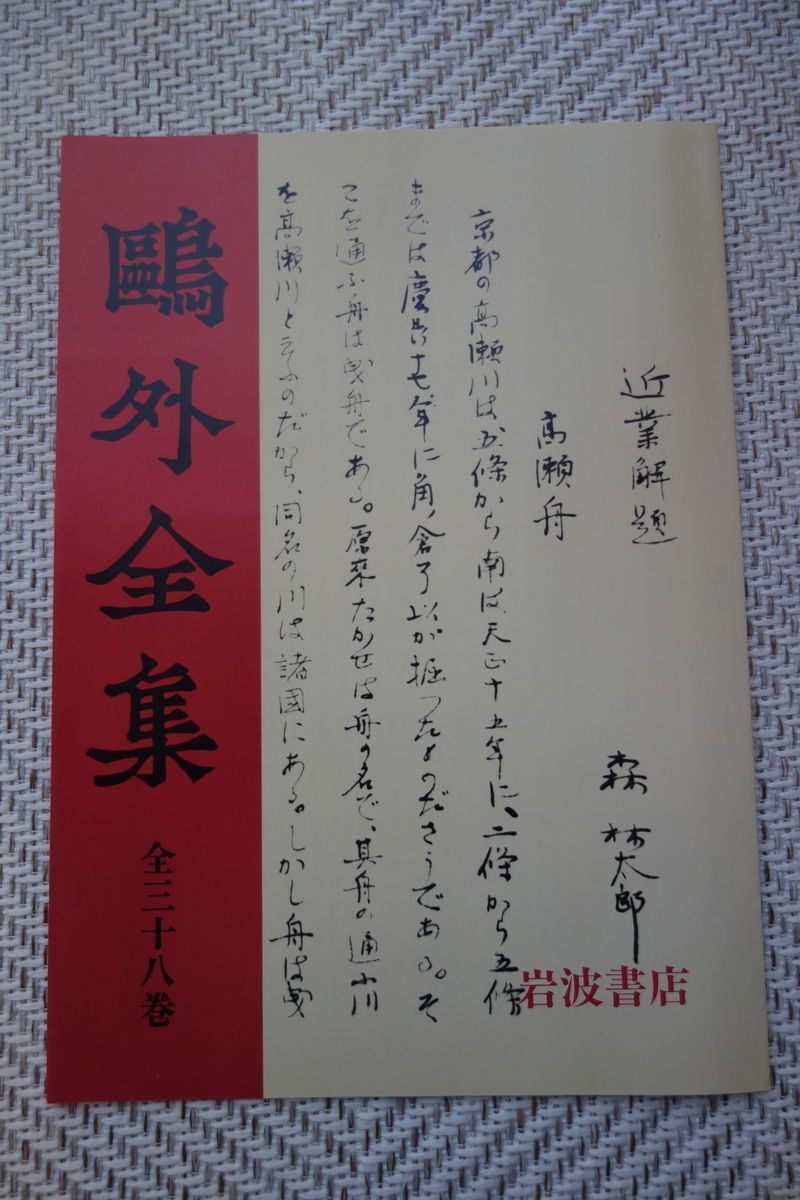 鷗外全集
全三十八巻
近業解題
森林太郎
高瀬舟
京都の高瀬川は五條から南は天正十五年に、二條から五條
までは慶長十七年に角倉了以が掘つたものださうである。そ
こを通ふ舟は曳舟である。原來たかせは舟の名で、其舟の通ふ川
を高瀬川と云ふのだから、同名の川は諸國にある。しかし舟は曳
岩波書店